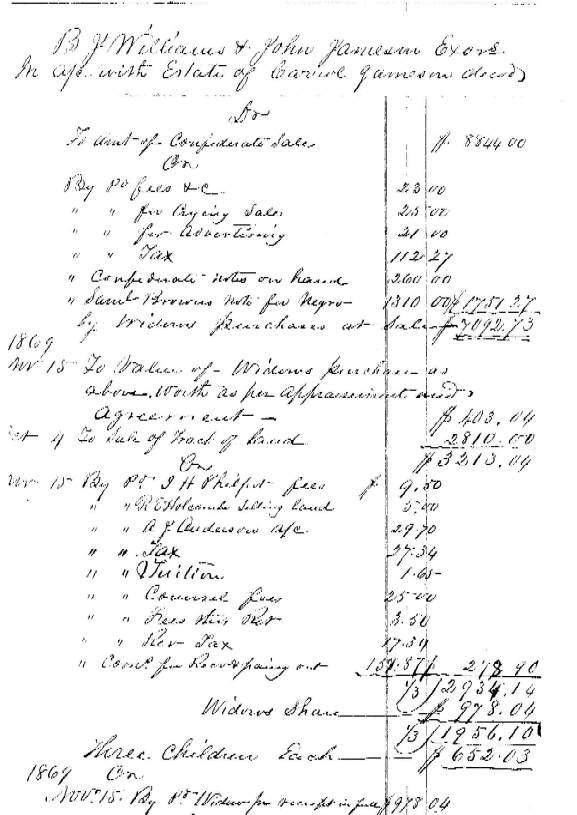 B J Williams & John Jameson Exors.
In a/c with Estate of Jameson decd
Dr
To Amt of Confederate Sale $ 8844 00
Cr
By Pd fees &c 23 00
" " for Crying Sales 25 00
" " for Advertising 21 00
" " Tax 112 27
" Confederate notes on hand 260 00
" Saml Browns Note for Negro 1310 00 $ 1751.27
by Widows purchases at Sale $ 7092.73
1869
Nov 15 To Value of Widows purchase as
above, Worth as per Appraisement and
Agreement $ 403.04
Oct 4 To Sale of Tract of Land 2810.00
Cr $ 3213.04
Nov 15 By Pd J H Philpot fees $ 9.50
" " R E Holcombe Selling land 5.00
" " A J Anderson a/c 29.70
" " Tax 27.34
" " Tuition 1.65
" " Counsel fees 25 00
" " Fees Rev 3.50
" " Rev Tax 17.34
" Coms for Recv & paying out 278.90
1/3 / 2934.14
Widows Share $ 978.04
1/3 / 1956.10
Three Children Each $ 652.03
1869 Cr
Nov. 15. By Pd Widow per receipt in full $ 978 04